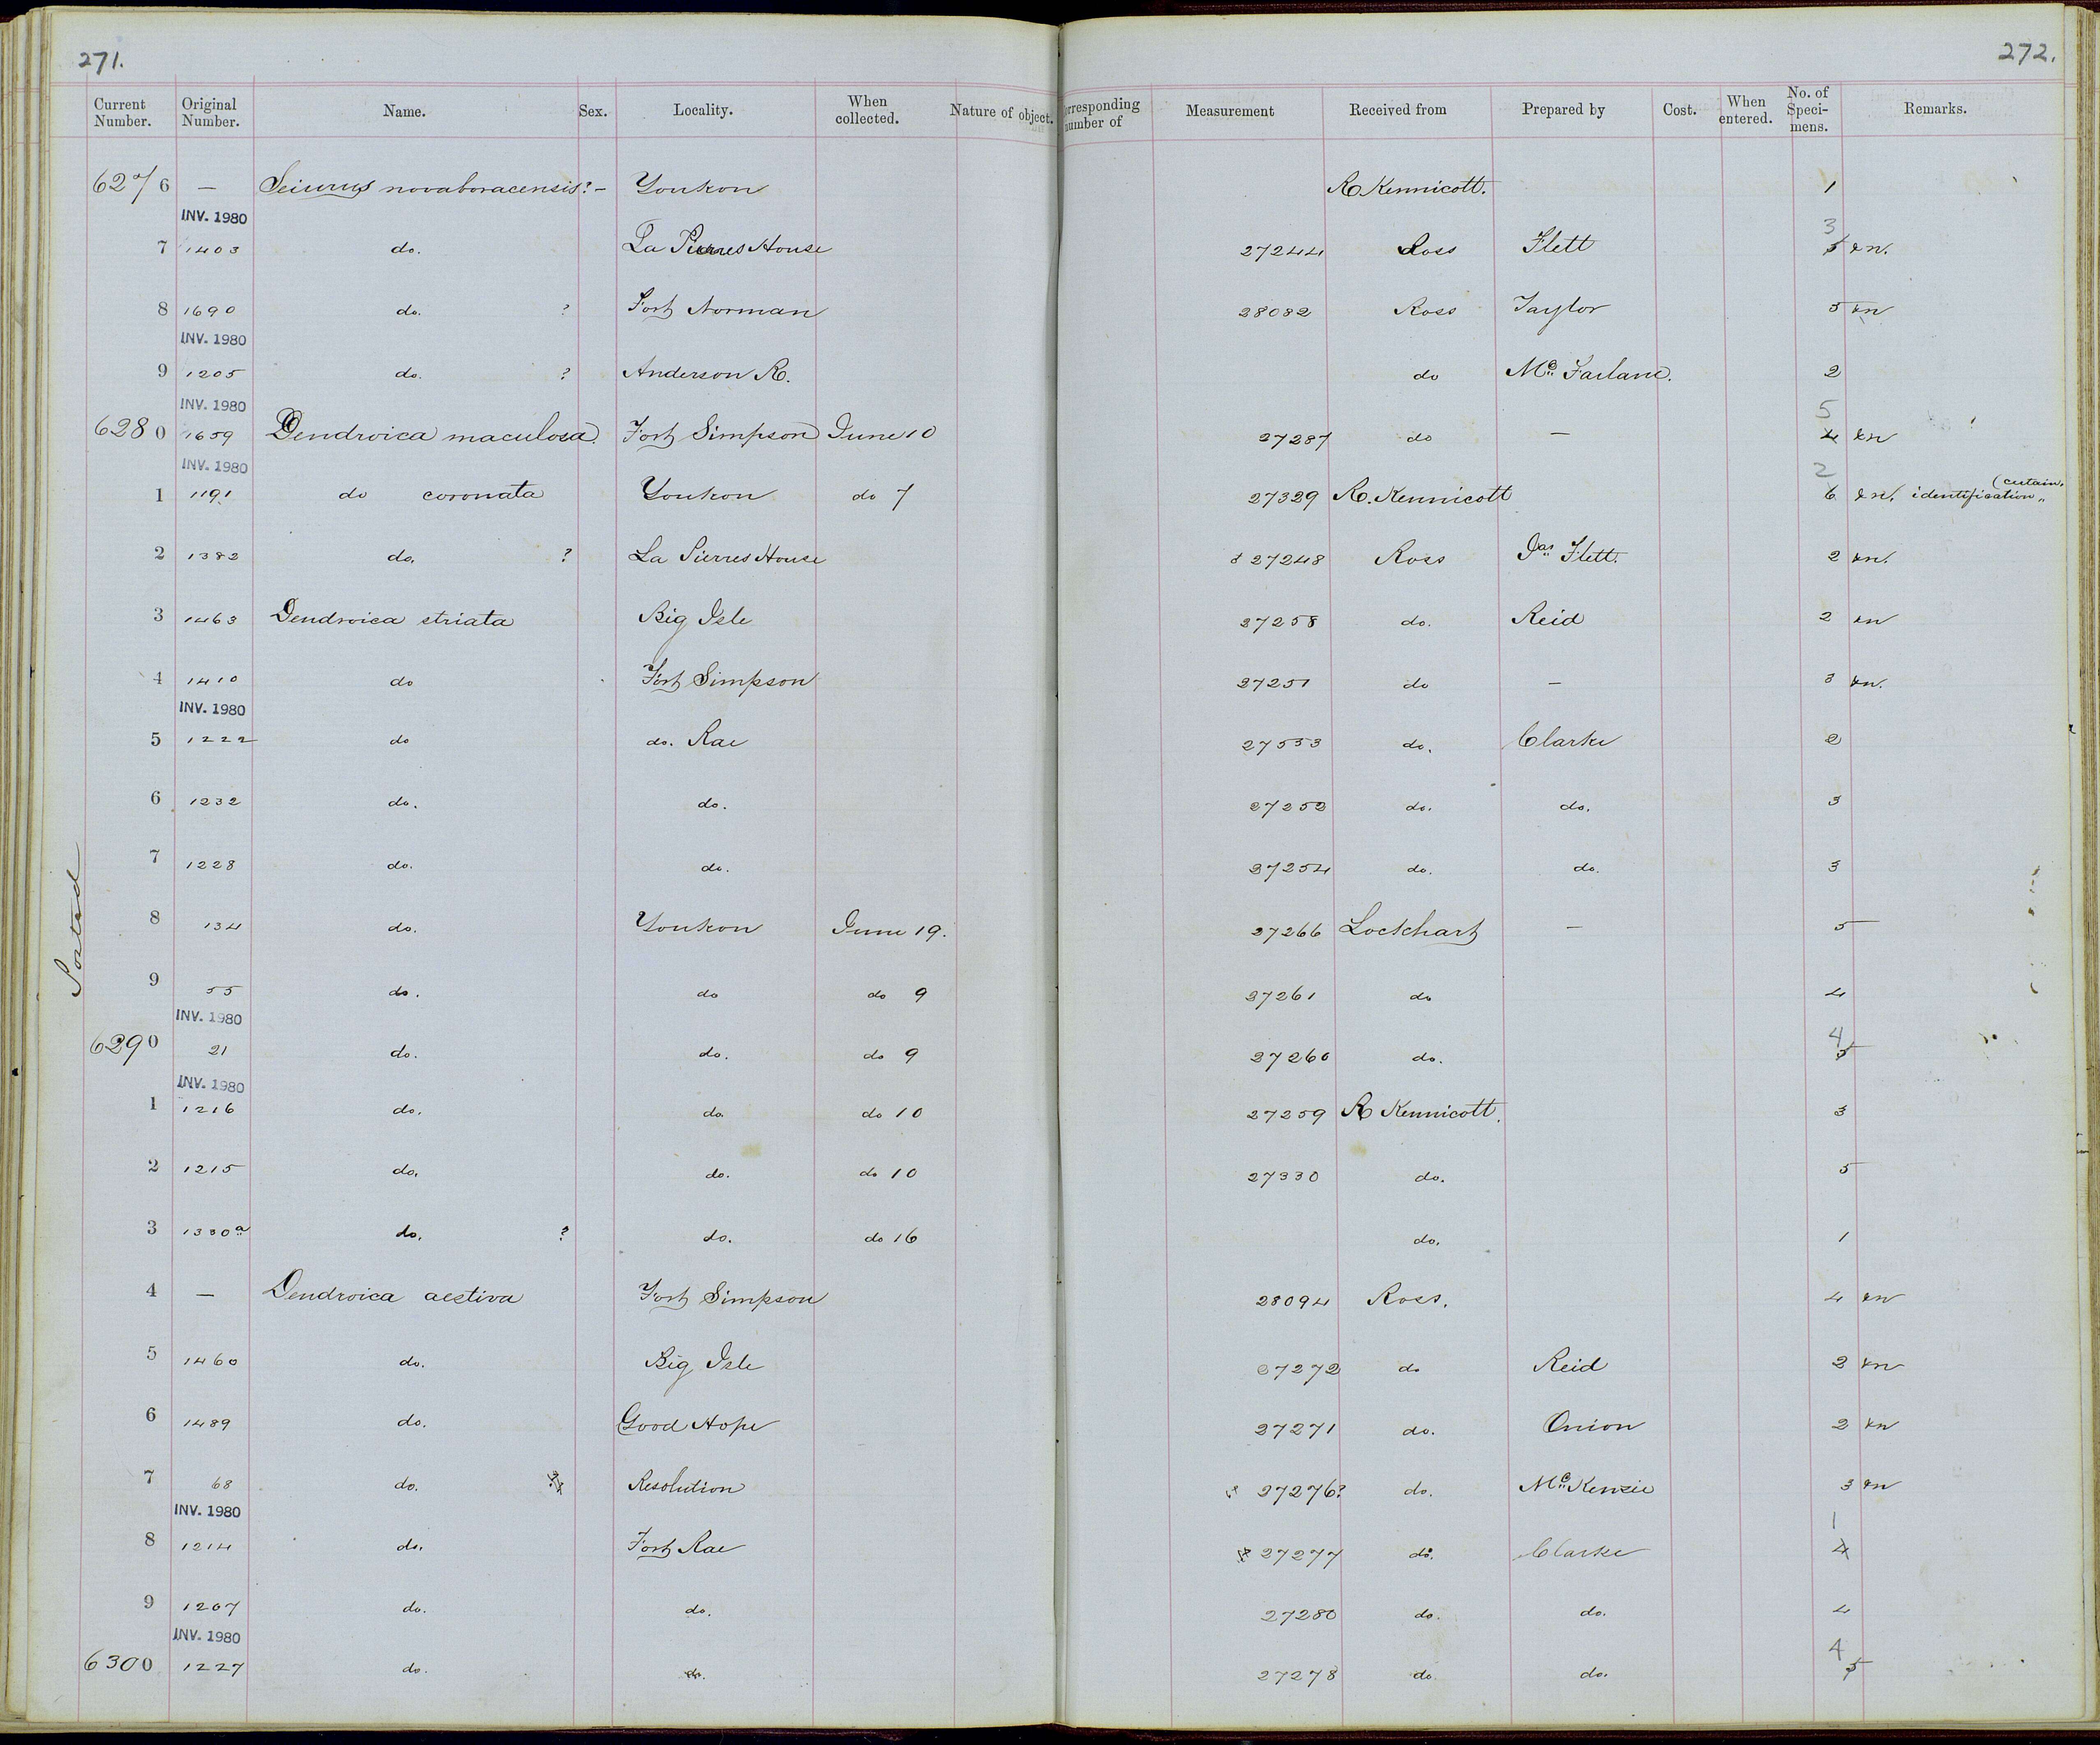 271.
272.
Current Number. Original Number. Name. Sex. Locality. When collected. Nature of object. orresponding number of Measurement Received from Prepared by Cost. When entered. No. of Speci-mens. Remarks.
6276 — Seiurus novaboracensis? – Youkon R Kennicott. 1
INV. 1980
7 1403 do. La Pierres House 27244 Ross Flett 3 5 &n.
8 1690 do. ? Fort Norman 28082 Ross Taylor 5 &n
INV. 1980
9 1205 do. ? Anderson R. do Mc Farlane. 2
INV. 1980
6280 1659 Dendroica maculosa. Fort Simpson June 10 27287 do — 5 4 &n
INV. 1980
1 1191 do coronata Youkon do 7 27329 R. Kennicott 2 6 &n. identification
2 1382 do. ? La Pierres House 27248 Ross Jas Flett. 2 &n.
3 1463 Dendroica striata Big Isle 27258 do. Reid 2 &n
4 1410 do Fort Simpson 27251 do — 3 &n.
INV. 1980
5 1222 do do. Rae 27533 do. Clarke 2
6 1232 do. do. 27252 do. do. 3
7 1228 do. do. 27254 do. do. 3
8 134 do. Youkon June 19. 27266 Lockhart — 5
9 55 do. do do 9 27261 do 4
INV. 1980
6290 21 do. do. do 9 27260 do. 4 5
INV. 1980
1 1216 do. do. do 10 27259 R Kennicott. 3
2 1215 do. do. do 10 27330 do. 5
3 1330a do. ? do. do 16 do. 1
4 — Dendroica aestiva Fort Simpson 28094 Ross. 4 &n
5 1460 do. Big Isle 27272 do Reid 2 &n
6 1489 do. Good Hope 27271 do. Onion 2 &n
7 68 do. Resolution 27276? do. Mc Kenzie 3 &n
INV. 1980
8 1214 do. Fort Rae 27277 do. Clarke 1 4
9 1207 do. do. 27280 do. do. 4
INV. 1980
6300 1227 do. do. 27278 do. do. 4 5